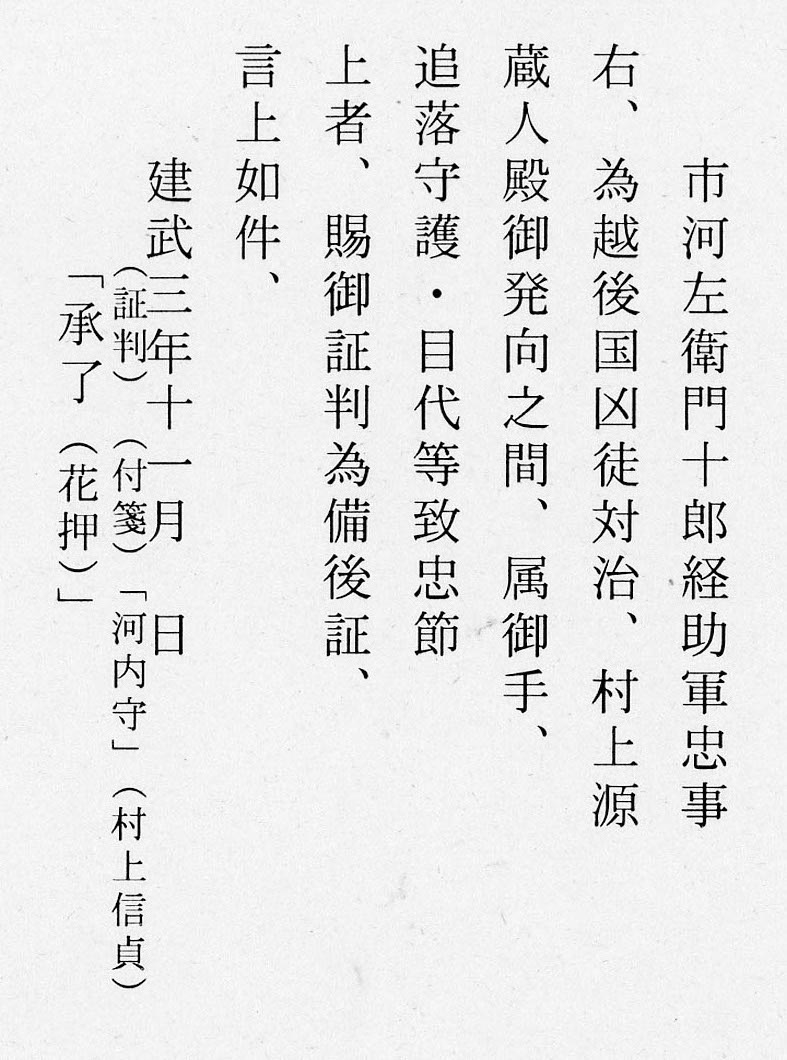 市河左衛門十郎経助軍忠事
右、為越後国凶徒対治、村上源
蔵人殿御発向之間、属御手、
追落守護・目代等致忠節
上者、賜御証判為備後証、
言上如件、
建武三年十一月　日
（証判）　（付箋）「河内守」（村上信貞）
「承了（花押）」